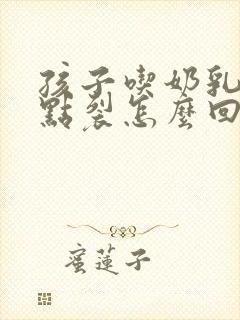 孩子喫奶乳
點裂怎麼回
蜜蓮子